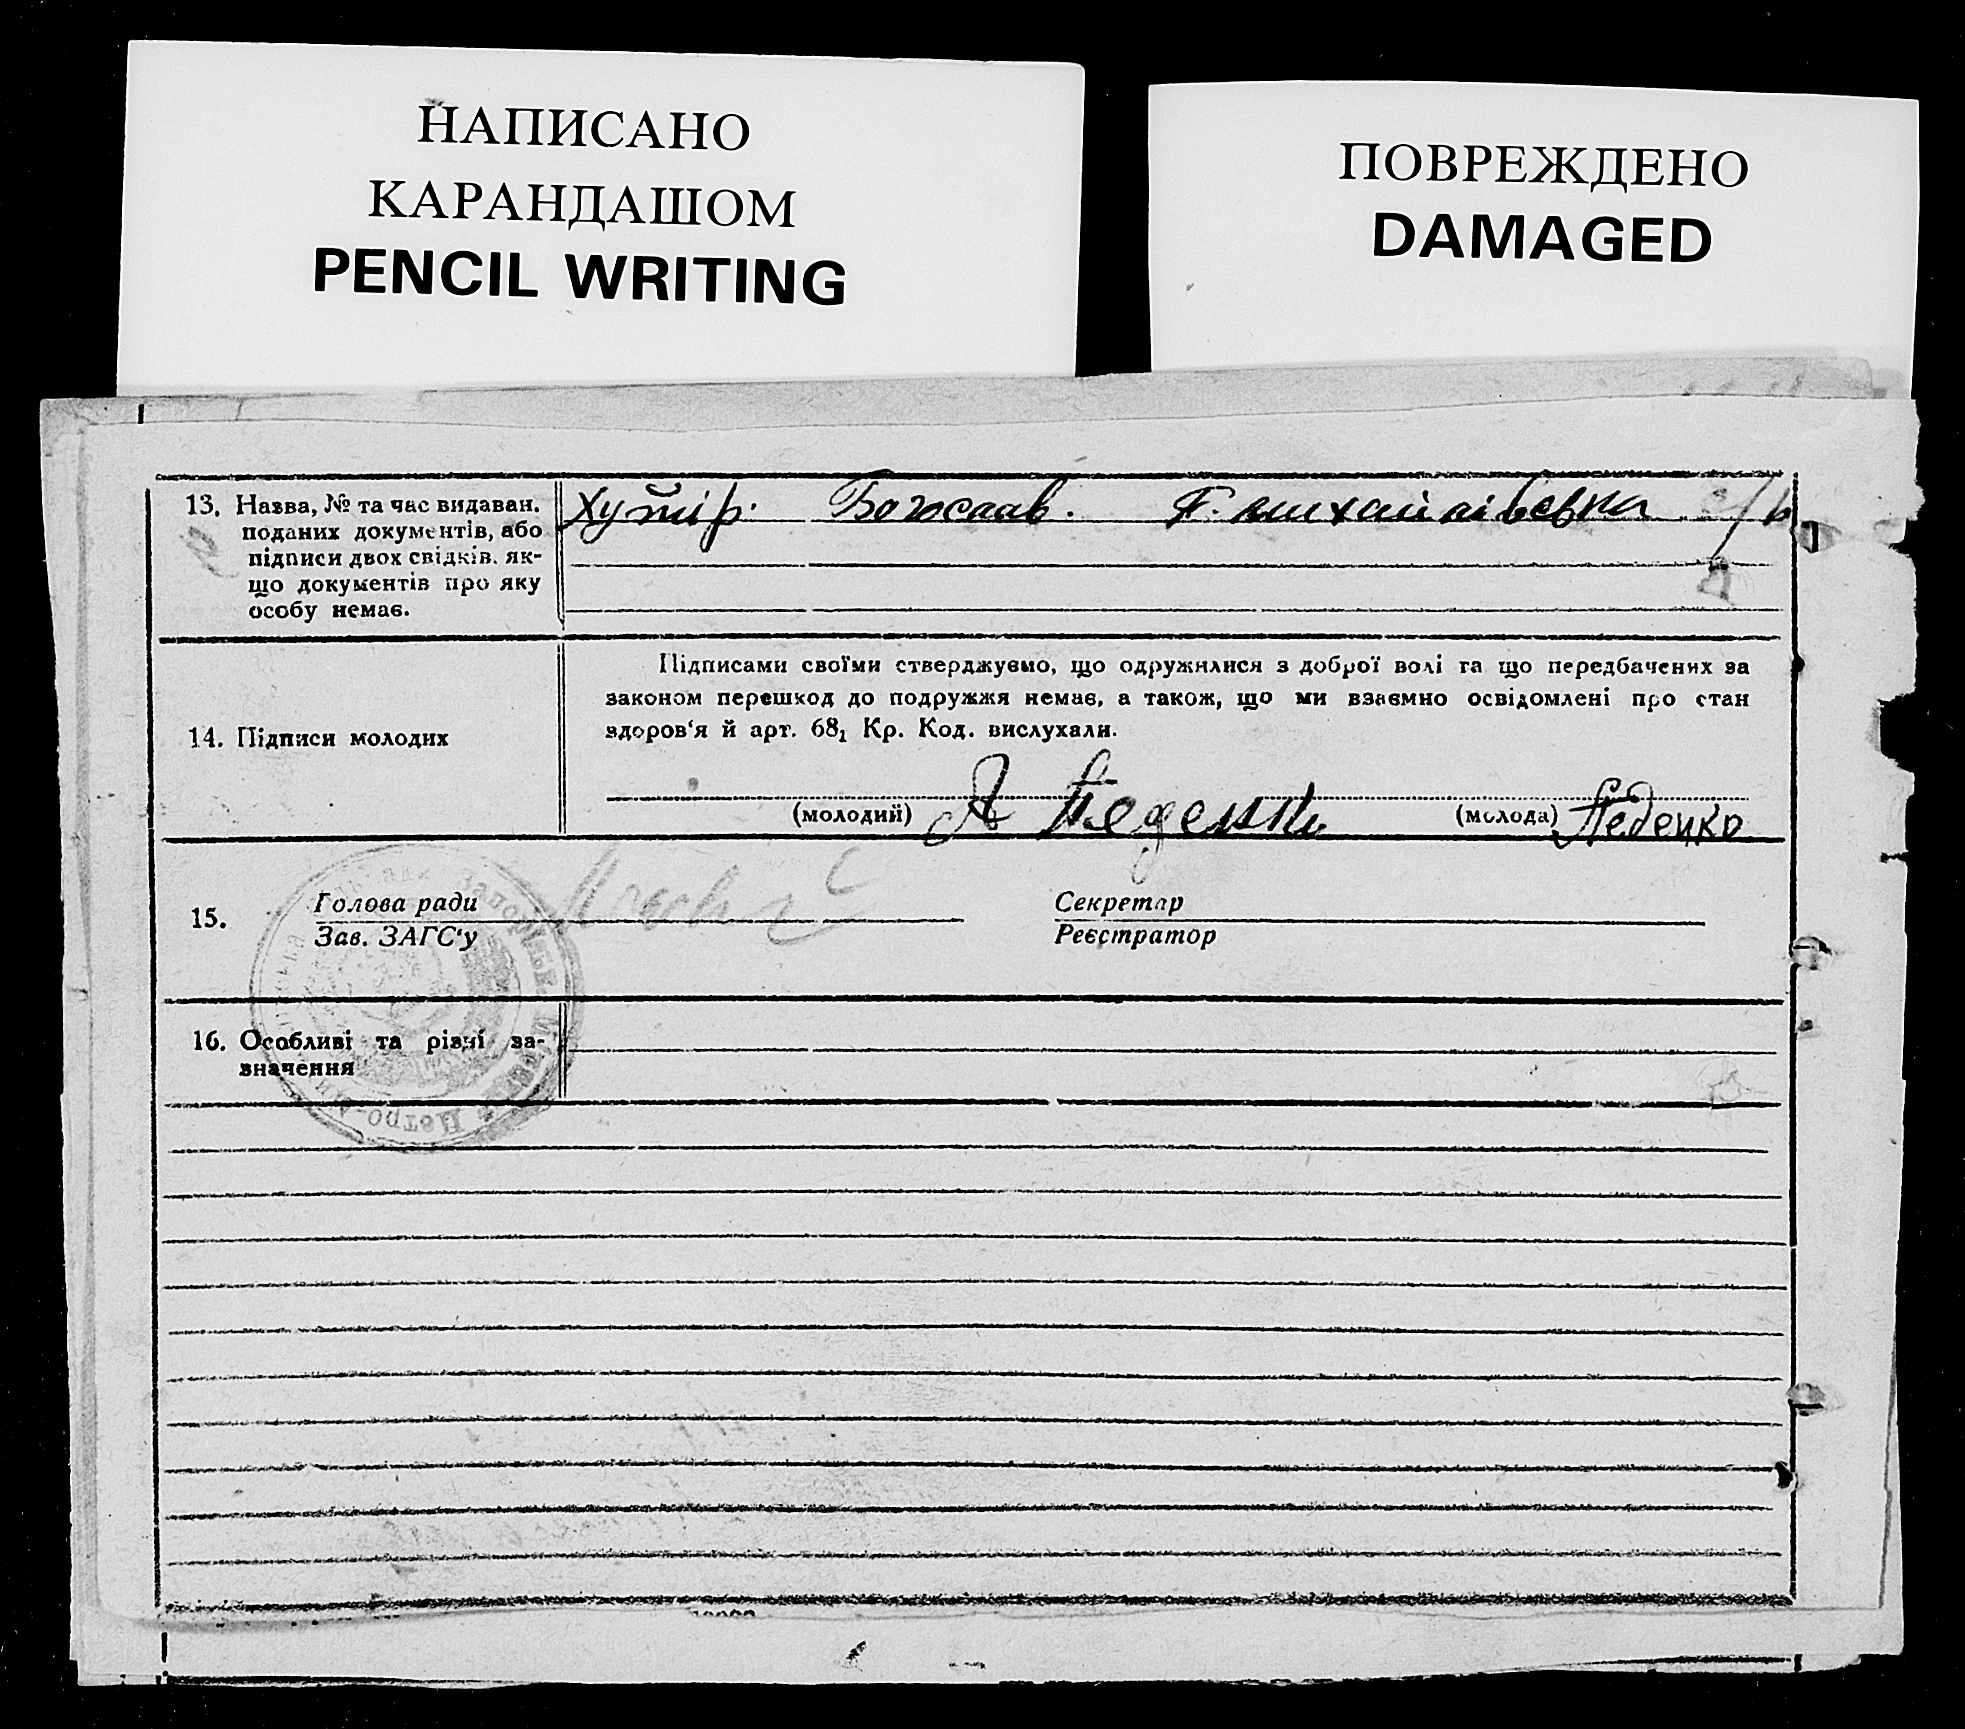 НАПИСАНО
КАРАНДАШОМ
PENCIL WRITING
ПОВРЕЖДЕНО
DAMAGED
13. Назва, № та час видаван.
поданих документів, або
підписи двох свідків, як-
що документів про яку
особу немає.
Хутір. Богослав. П. михайлівська с/р
14. Підписи молодих
Підписами своїми стверджуємо, що одружилися з доброї волі та що передбачених за
законом перешкод до подружжя немає, а також, що ми взаємно освідомлені про стан
здоров'я й арт. 68₁ Кр. Код. вислухали.
(молодий)
(молода) Педенко
15. Голова ради
Зав. ЗАГС'у
Секретар
Реєстратор
16. Особливі та різні за-
значення